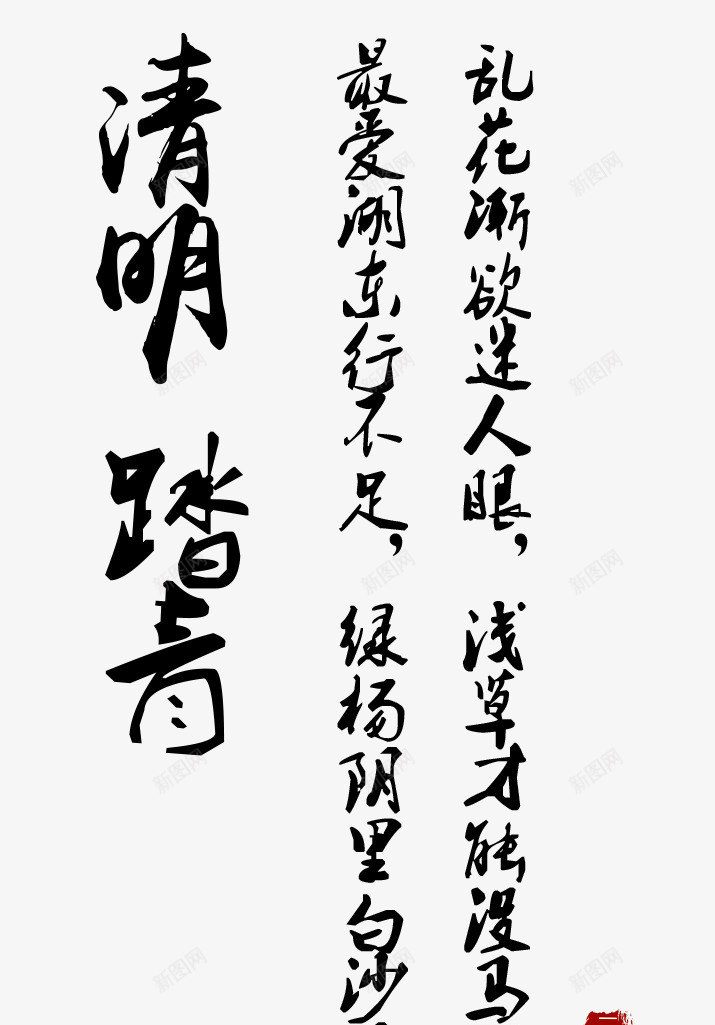 乱花渐欲迷人眼，浅草才能没马
最爱湖东行不足，绿杨阴里白沙
清明 踏青
新图网